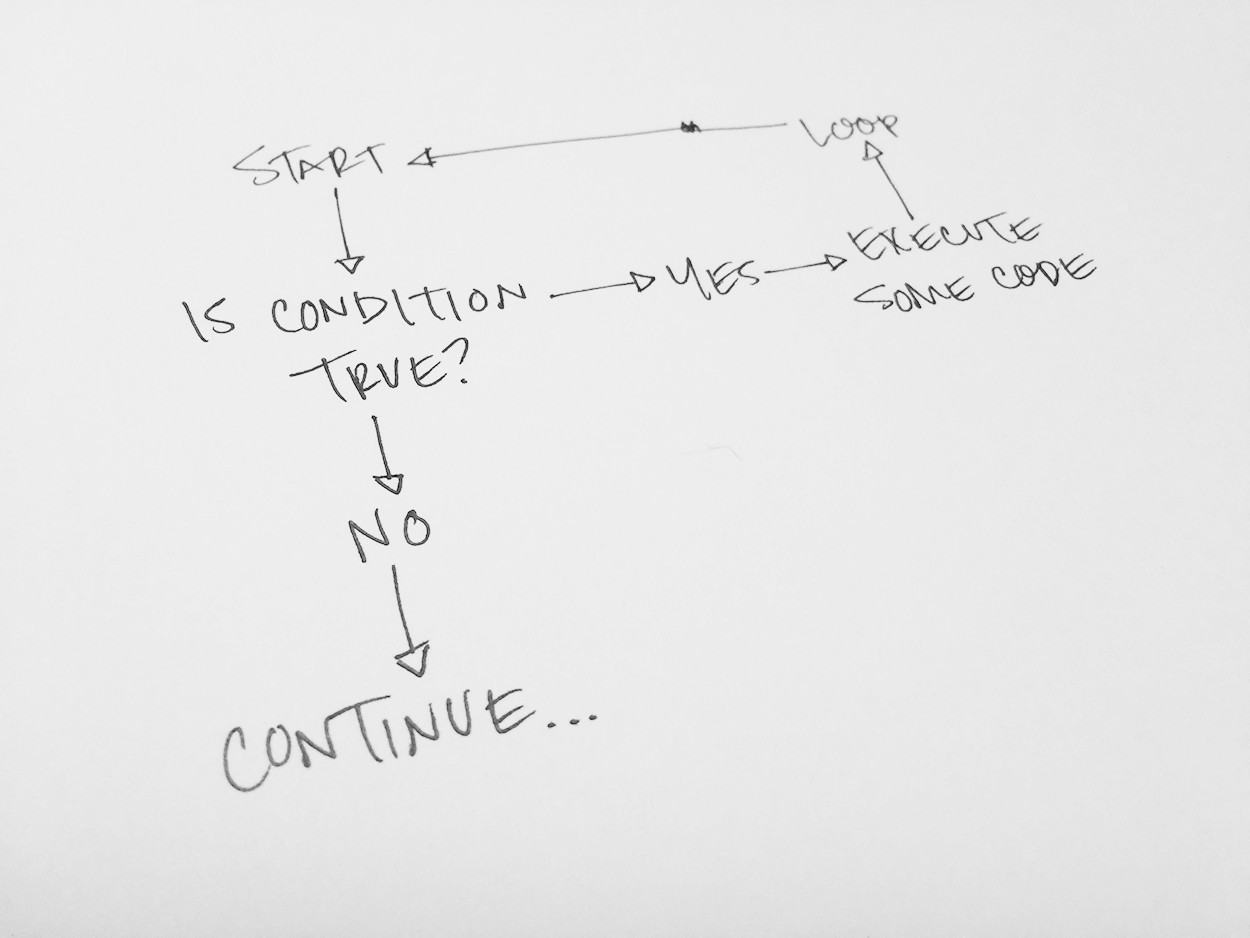 START
LOOP
IS CONDITION
TRUE?
YES
EXECUTE
SOME CODE
NO
CONTINUE...